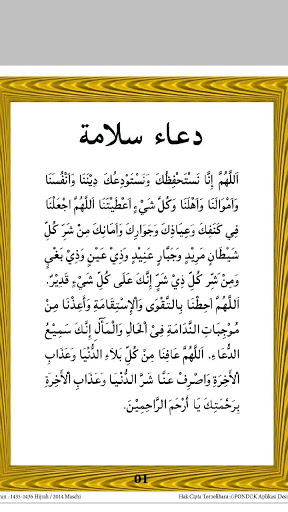 دعاء سلامة
اَللّٰهُمَّ اِنَّا نَسْتَحْفِظُكَ وَنَسْتَوْدِعُكَ دِيْنَنَا وَاَنْفُسَنَا
وَاَمْوَالَنَا وَاَهْلَنَا وَكُلَّ شَيْءٍ اَعْطَيْتَنَا اَللّٰهُمَّ اجْعَلْنَا
فِى كَنَفِكَ وَعِيَاذِكَ وَجَوَارِكَ وَاَمَانِكَ مِنْ شَرِّ كُلِّ
شَيْطَانٍ مَرِيْدٍ وَجَبَّارٍ عَنِيْدٍ وَذِيْ عَيْنٍ وَذِيْ بَغْيٍ
وَمِنْ شَرِّ كُلِّ ذِيْ شَرٍّ اِنَّكَ عَلَى كُلِّ شَيْءٍ قَدِيْرٌ.
اَللّٰهُمَّ اَحِطْنَا بِالتَّقْوَى وَالْاِسْتِقَامَةِ وَاَعِذْنَا مِنْ
مُوْجِبَاتِ النَّدَامَةِ فِىْ الْحَالِ وَالْمَآلِ اِنَّكَ سَمِيْعُ
الدُّعَاءِ. اَللّٰهُمَّ عَافِنَا مِنْ كُلِّ بَلَاءِ الدُّنْيَا وَعَذَابِ
الْاٰخِرَةِ وَاصْرِفْ عَنَّا شَرَّ الدُّنْيَا وَعَذَابَ الْاٰخِرَةِ
بِرَحْمَتِكَ يَا اَرْحَمَ الرَّاحِمِيْنَ.
01
: 1435-1436 Hijrah / 2014 Masehi
Hak Cipta Terpelihara : ©PONDOK Aplikasi Des